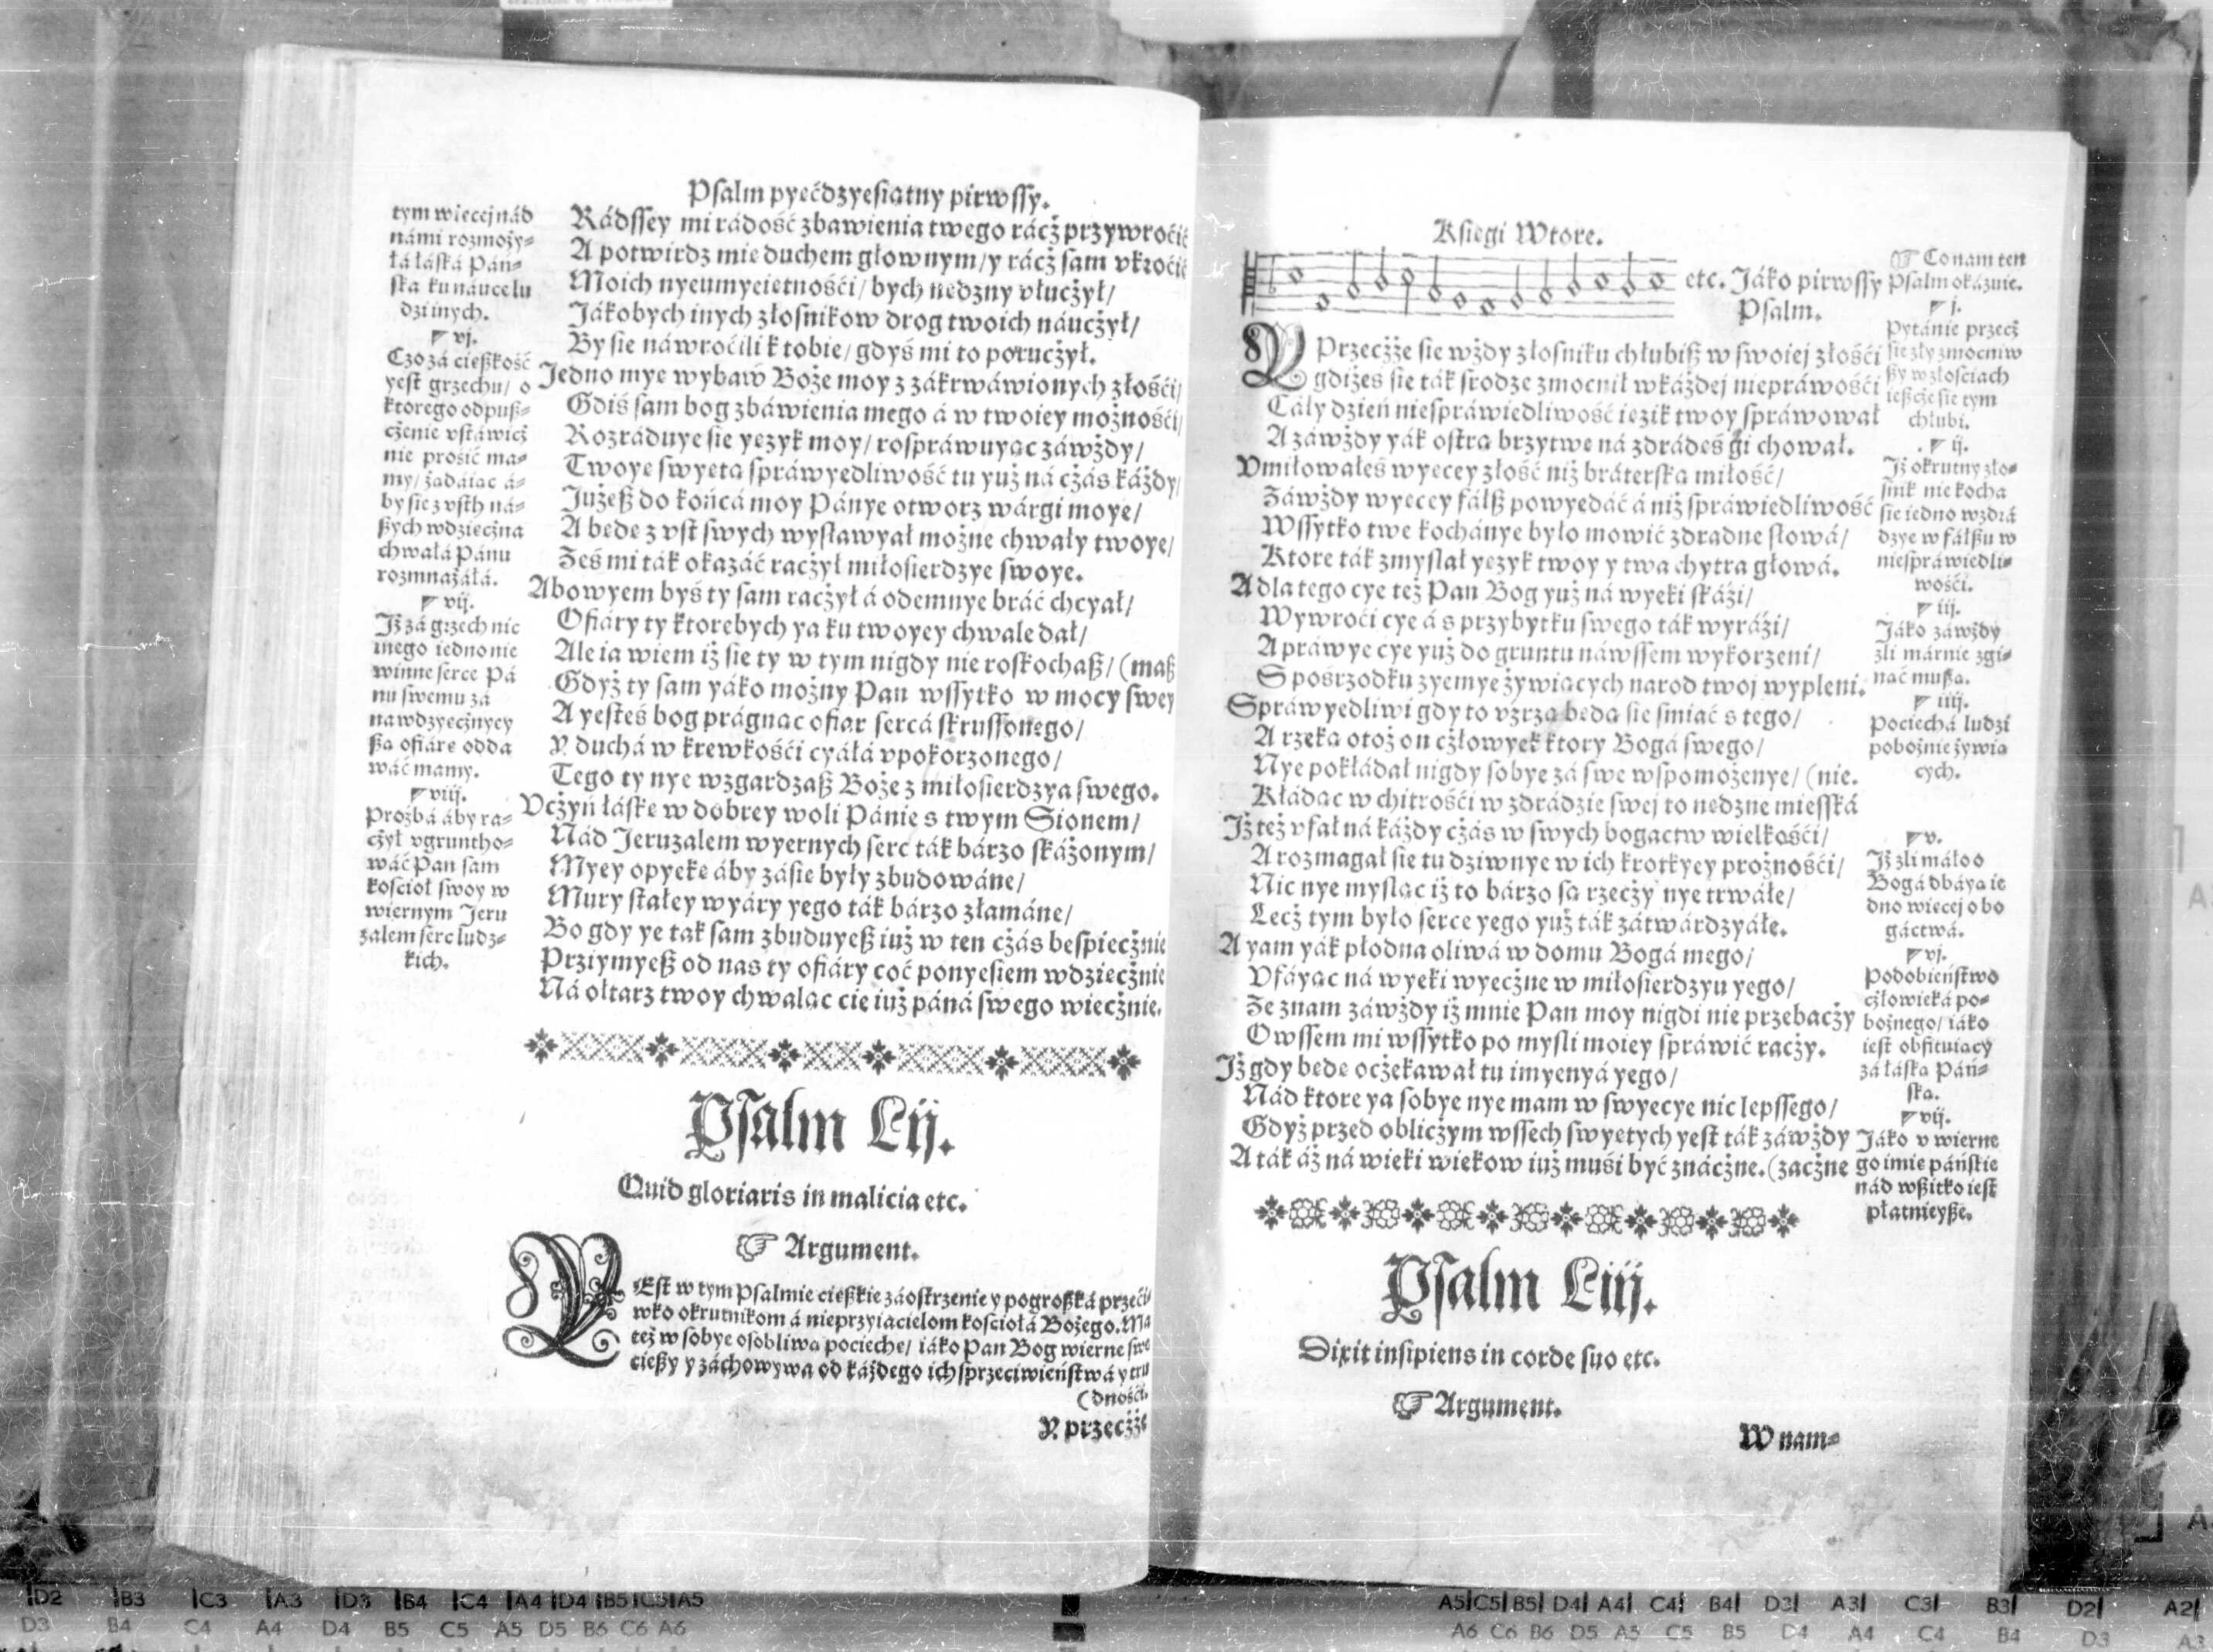 Psalm pyećdzyesiatny pirwssy.
tym wiecej nád
námi rozmoży⸗
łá łáská Páń⸗
ska ku náuce lu
dzi inych.
vj.
Czo zá cięßkość
yest grzechu/ o
ktorego odpuß⸗
cżenie vstáwicż
nie prosić ma⸗
my/ żadáiac á⸗
by sie z vsth ná⸗
ßych wdziecżna
chwałá Pánu
rozmnażáłá.
vij.
Jż zá grzech nic
inego iedno nie
winne serce Pá
nu swemu zá
na wdzyecżnyey
ßa ofiáre odda
wáć mamy.
viij.
Proźbá áby ra⸗
cżył vgruntho⸗
wáć Pan sam
kościoł swoy w
wiernym Jeru
zalem serc ludz⸗
kich.
Rádssey mi rádość zbawienia twego rácż przywroćić
A potwirdz mie duchem głownym/ y rácż sam vkroćić
Moich nyeumyeietnośći/ bych nedzny vłucżył/
Jákobych inych złosnikow drog twoich náucżył/
By sie náwroćili k tobie/ gdyś mi to porucżył.
Jedno mye wybaw Boże moy z zákrwáwionych złośći/
Gdiś sam bog zbáwienia mego á w twoiey możnośći/
Rozráduye sie yezyk moy/ rospráwuyac záwżdy/
Twoye swyeta spráwyedliwość tu yuż ná cżás káżdy/
Jużeß do końcá moy Pánye otworz wárgi moye/
A bede z vst swych wysławyał możne chwały twoye/
Żeś mi ták okazáć racżył miłosierdzye swoye.
Abowyem byś ty sam racżył á odemnye bráć chcyał/
Ofiáry ty ktorebych ya ku twoyey chwale dał/
Ale ia wiem iż sie ty w tym nigdy nie roskochaß/ (maß
Gdyż ty sam yáko możny Pan wssytko w mocy swey
A yesteś bog prágnac ofiar sercá skrussonego/
Y duchá w krewkośći cyáłá vpokorzonego/
Tego ty nye wzgardzaß Boże z miłosierdzya swego.
Vcżyń łáske w dobrey woli Pánie s twym Sionem/
Nád Jeruzalem wyernych serc ták bárzo skáżonym/
Myey opyeke áby zásie były zbudowáne/
Mury stałey wyáry yego ták bárzo złamáne/
Bo gdy ye tak sam zbuduyeß iuż w ten cżás bespiecżnie
Prziymyeß od nas ty ofiáry coć ponyesiem wdziecżnie
Ná ołtarz twoy chwalac cie iuż páná swego wiecżnie.
Psalm Lij.
Quid gloriaris in malicia etc.
Argument.
YEst w tym Psalmie cießkie záostrzenie y pogroßká przeći⸗
wko okrutnikom á nieprzyiacielom kościołá Bożego. Ma
też w sobye osobliwa pocieche/ iáko Pan Bog wierne swe
cießy y záchowywa od káżdego ich sprzeciwieństwá y tru
(dnośći.
Y przecżże
Ksiegi Wtore.
etc. Jáko pirwssy
Psalm.
Y Przecżże sie wżdy złosniku chłubiß w swoiej złośći
gdiżes sie ták srodze zmocnił w káżdej niepráwośći
Cáły dzień niespráwiedliwość iezik twoy spráwował
A záwżdy yák ostra brzytwe ná zdrádeś gi chował.
Vmiłowałeś wyecey złość niż bráterska miłość/
Záwżdy wyecey fálß powyedáć á niż spráwiedliwość
Wssytko twe kochánye było mowić zdradne słowá/
Ktore ták zmyslał yezyk twoy y twa chytra głowá.
A dla tego cye też Pan Bog yuż ná wyeki skáźi/
Wywroći cye á s przybytku swego ták wyráźi/
A práwye cye yuż do gruntu náwssem wykorzeni/
S pośrzodku zyemye żywiacych narod twoj wypleni.
Spráwyedliwi gdy to vźrza beda sie śmiać s tego/
A rzeka otoż on cżłowyek ktory Bogá swego/
Nye pokłádał nigdy sobye zá swe wspomożenye/ (nie.
Kłádac w chitrośći w zdrádzie swej to nedzne miesską
Jż też vfał ná káżdy cżás w swych bogactw wielkośći/
A rozmagał sie tu dziwnye w ich krotkyey prożnośći/
Nic nye myslac iż to bárzo sa rzecży nye trwáłe/
Lecż tym było serce yego yuż ták zátwárdzyáłe.
A yam yák płodna oliwá w domu Bogá mego/
Vfáyac ná wyeki wyecżne w miłosierdzyu yego/
Że znam záwżdy iż mnie Pan moy nigdi nie przebacży
Owssem mi wssytko po mysli moiey spráwić racży.
Jż gdy bede ocżekawał tu imyenyá yego/
Nád ktore ya sobye nye mam w swyecye nic lepssego/
Gdyż przed oblicżym wssech swyetych yest ták záwżdy
A ták áż ná wieki wiekow iuż muśi być znácżne. (zacżne
Co nam ten
Psalm okázuie.
j.
Pytánie przecż
sie zły zmocniw
ßy w złosciach
ießcże sie tym
chłubi.
ij.
Jż okrutny zło⸗
snik nie kocha
sie iedno w zdrá
dzye w fálßu w
niespráwiedli⸗
wośći.
iij.
Jáko záwżdy
zli márnie zgi⸗
náć mußa.
iiij.
Pociechá ludzi
pobożnie żywia
cych.
v.
Jż zli máło o
Bogá dbáya ie
dno wiecej o bo
gáctwá.
vj.
Podobieństwo
cżłowieká po⸗
bożnego/ iáko
iest obfituiacy
zá łáska Páń⸗
ska.
vij.
Jáko v wierne
go imie páńskie
nád wßitko iest
płatnieyße.
Psalm Liij.
Dixit insipiens in corde suo etc.
Argument.
W nam⸗
D2 B3 C3 A3 D3 B4 C4 A4 D4 B5 C5 A5
D3 B4 C4 A4 D4 B5 C5 A5 D5 B6 C6 A6
A5 C5 B5 D4 A4 C4 B4 D3 A3 C3 B3 D2 A2
A6 C6 B6 D5 A5 C5 B5 D4 A4 C4 B4 D3 A3